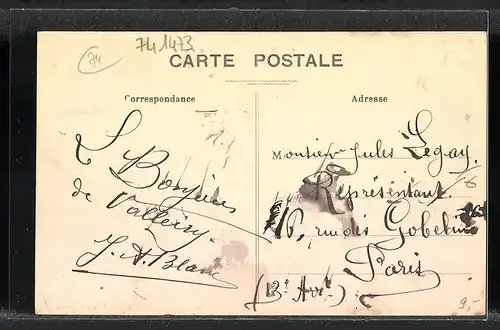 74
741473
CARTE POSTALE
Correspondance
Adresse
Bonjours
de Valleiry
J. A. Blanc
Monsieur Jules Legay
Représentant
16, rue des Gobelins
Paris
(13e Arrt)
9,-